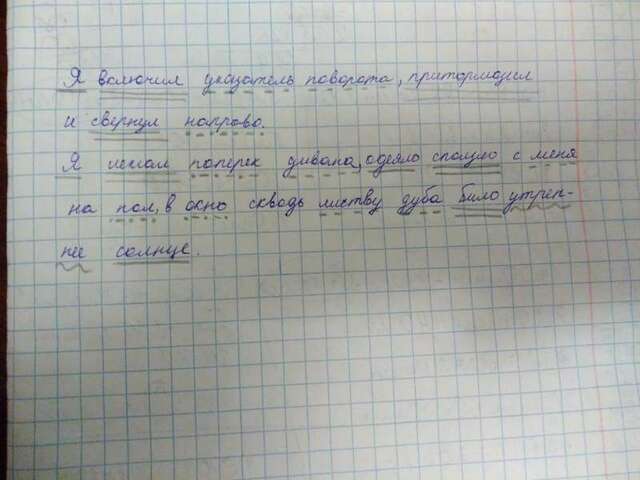 Я включил указатель поворота, притормозил
и свернул направо.
Я лежал поперек дивана, одеяло сползло с меня
на пол, в окно сквозь листву дуба било утрен-
нее солнце.